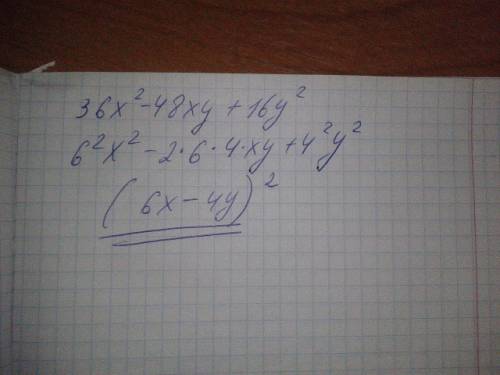 36x²-48xy+16y²
6²x²-2·6·4·xy+4²y²
(6x-4y)²